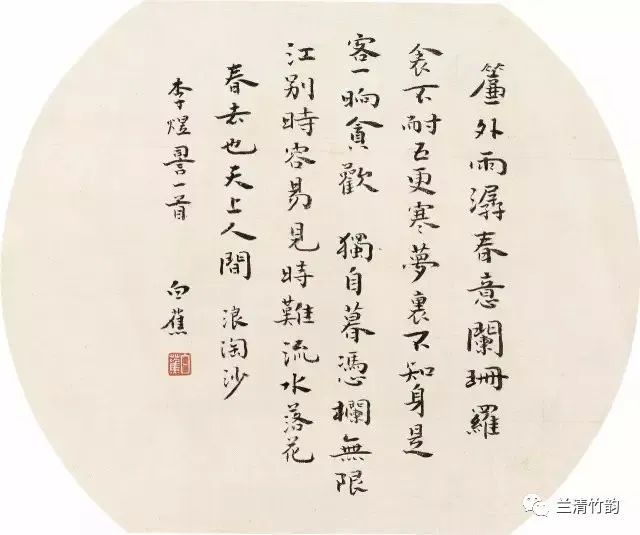 簾外雨潺春意闌珊羅
衾不耐五更寒夢裏不知身是
客一晌貪歡 獨自暮憑欄無限
江別時容易見時難流水落花
春去也天上人間 浪淘沙
李煜䛐一首
白蕉
白蕉
兰清竹韵